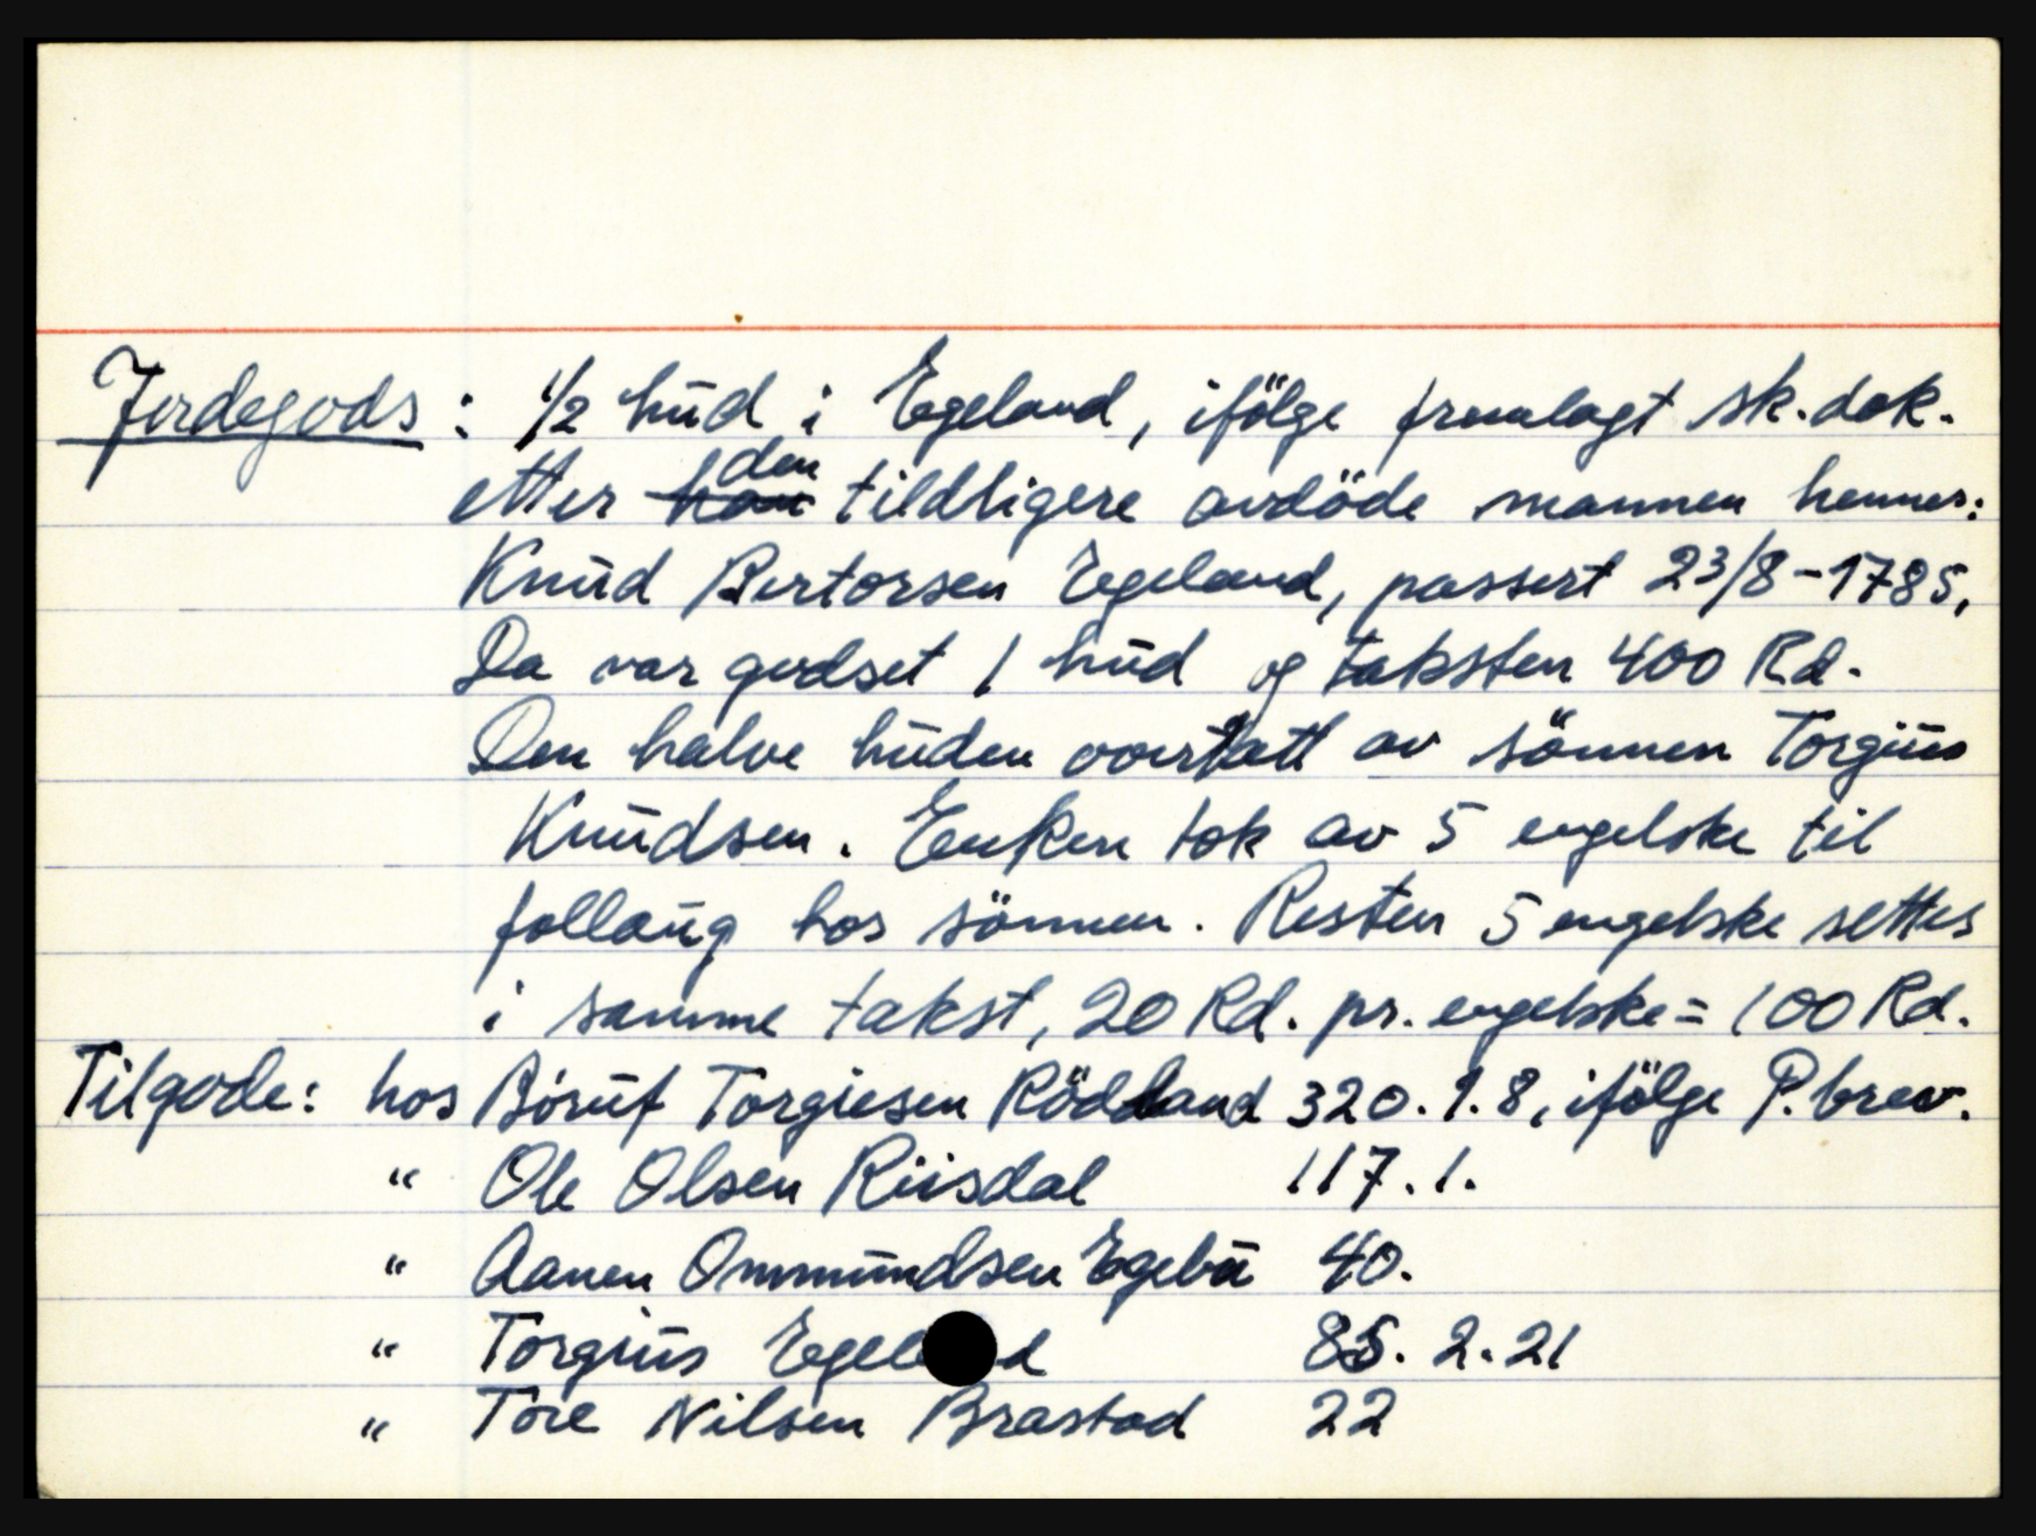 Jordegods: 1/2 hud i Egeland, ifölge fremlagt sk.dok.
etter den tildligere avdöde mannen hennes:
Knud Bertorsen Egeland, passert 23/8-1785,
Da var godset 1 hud og taksten 400 Rd.
Den halve huden overtatt av sönnen Torgius
Knudsen. Enken tok av 5 engelske til
follaug hos sönnen. Resten 5 engelske settes
i samme takst, 20 Rd. pr. engelske = 100 Rd.
Tilgode: hos Boruf Torgiesen Rödland 320.1.8, ifölge P.brev.
" Ole Olsen Riisdal 117.1.
" Aanen Ommundsen Egebu 40.
" Torgius Egeland 85. 2. 21
" Tore Nilsen Brastad 22